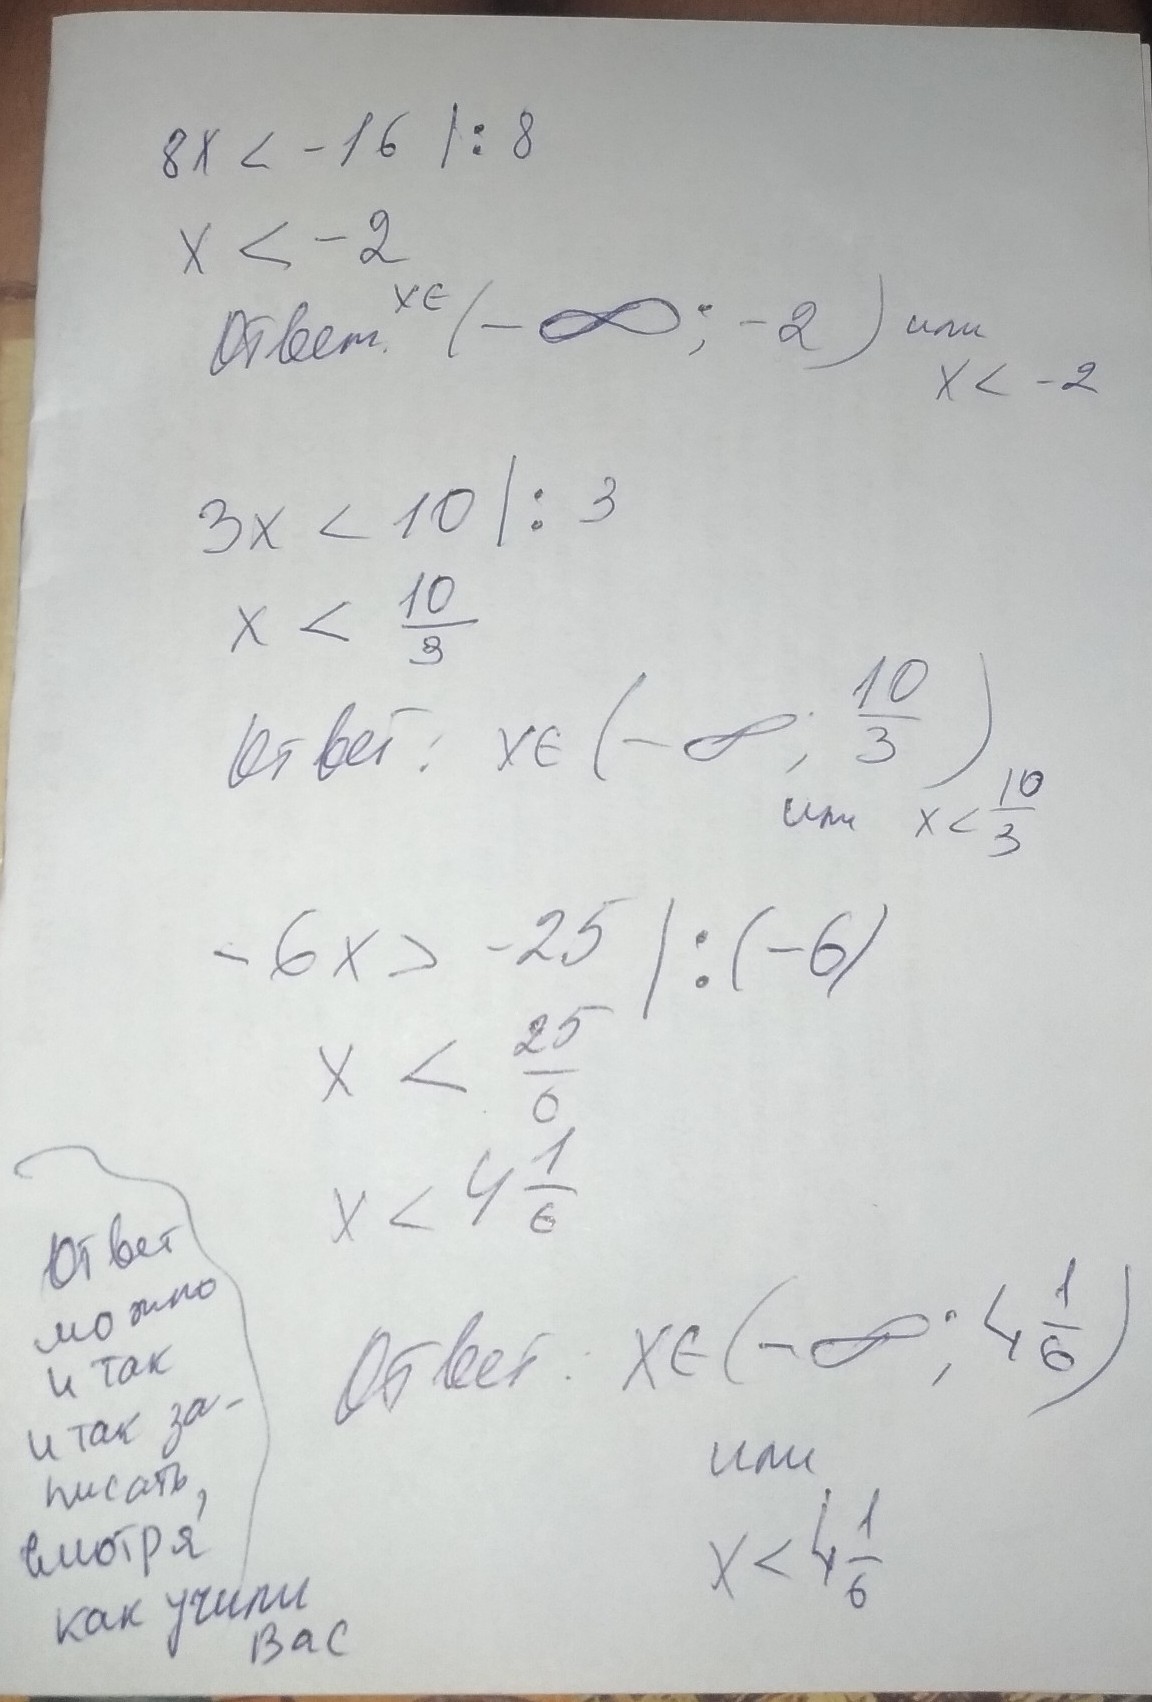 8x < -16 |: 8
x < -2
Ответ. x∈(-∞; -2) или
x < -2
3x < 10 |: 3
x < 10/3
Ответ: x∈(-∞; 10/3)
или x < 10/3
-6x > -25 |:(-6)
x < 25/6
x < 4 1/6
Ответ: x∈(-∞; 4 1/6)
или
x < 4 1/6
Ответ
можно
и так
и так за-
писать,
смотря
как учили
вас